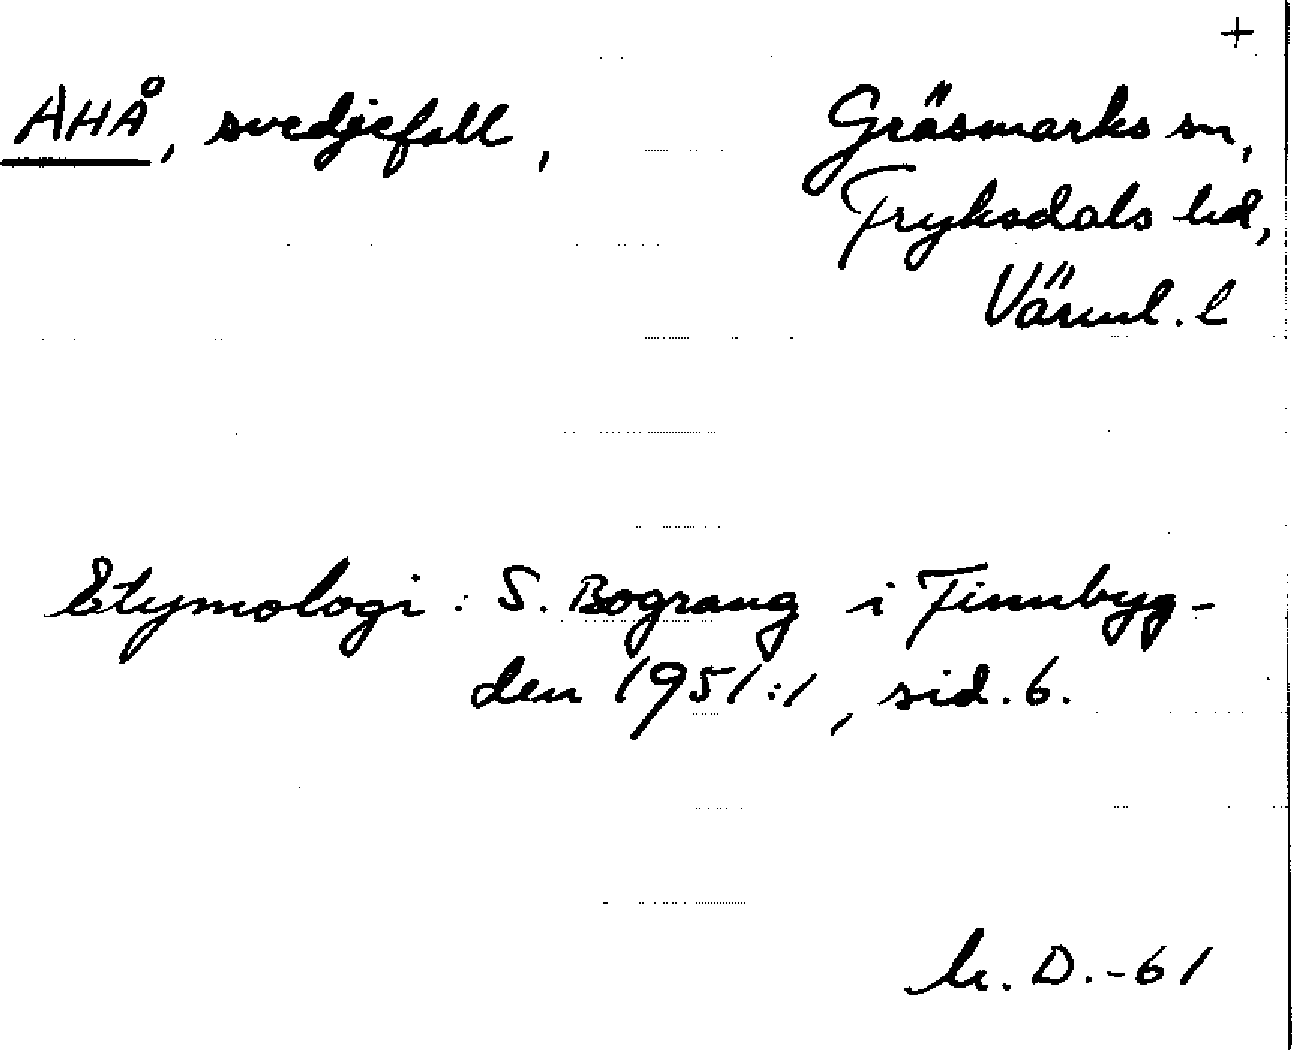 +
AHÅ, svedjefall, Gräsmarks sn,
Fryksdals hd,
Värml. l
Etymologi: S. Bograng i Finnbyg-
den 1951:1, sid. 6.
D. -61